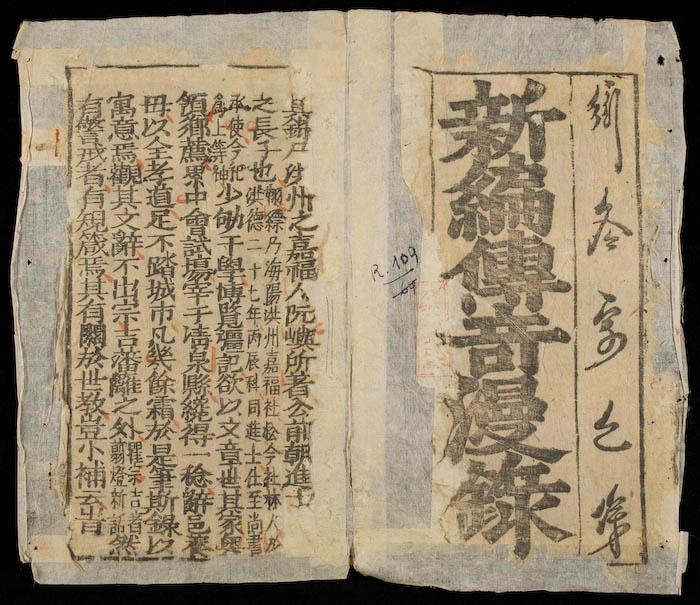 新編傳奇漫錄
R.109
其錄乃洪州之嘉福人阮嶼所著公前朝進士
之長子也
翔縹乃海陽洪州嘉福社松今杜林人
洪德二十七年丙辰科同進士仕至尚書
承使今祀
爲上等神
少劬于學博覽彊記欲以文章世其家粤
領鄉薦累中會試場宰于清泉縣纔得一稔辭邑養
母以全孝道足不踏城市凡幾餘霜於是筆斯錄以
寓意焉觀其文辭不出宗吉藩籬之外
瞿宗吉著
剪燈新話
然
有警戒者有規箴焉其有關於世教豈小補云旹